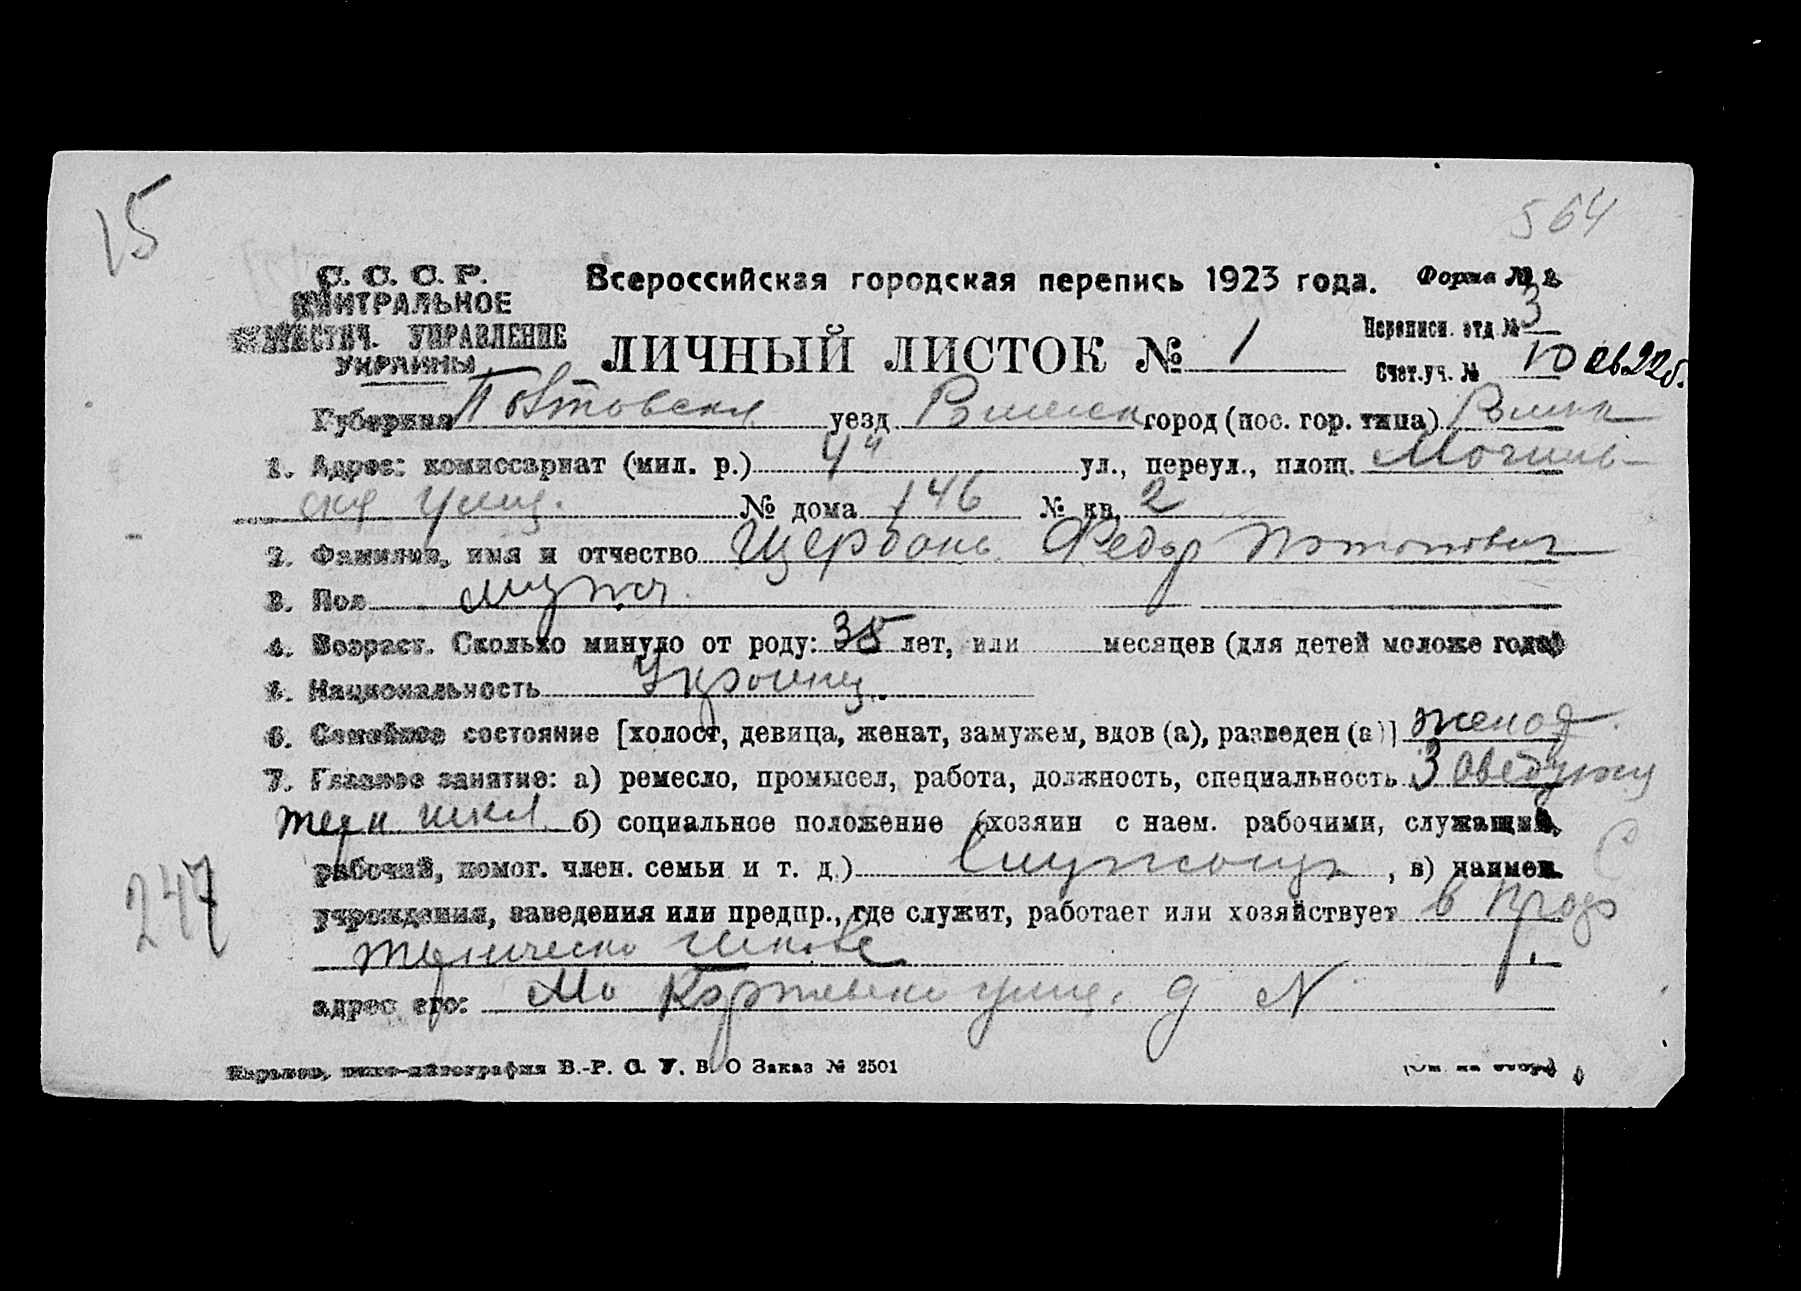 15
564
С. С. С. Р.
ЦЕНТРАЛЬНОЕ
СТАТИСТИЧ. УПРАВЛЕНИЕ
УКРАИНЫ
Всероссийская городская перепись 1923 года. Форма № 2.
ЛИЧНЫЙ ЛИСТОК № 1
Переписн. отд № 3
Счет. уч. № 10
Губерния Полтовская уезд город (пос. гор. типа)
1. Адрес: комиссариат (мил. р.) 4й ул., переул., площ. Могилев-
ская улиц. № дома 146 № кв. 2
2. Фамилия, имя и отчество Щербань Федор Потапович
3. Пол муж.
4. Возраст. Сколько минуло от роду: 35 лет, или месяцев (для детей моложе года)
5. Национальность Украинец.
6. Семейное состояние [холост, девица, женат, замужем, вдов (а), разведен (а)] женат
7. Главное занятие: а) ремесло, промысел, работа, должность, специальность
школ б) социальное положение (хозяин с наем. рабочими, служащий,
рабочий, помог. член. семьи и т. д.) Служащий, в) наимен.
учреждения, заведения или предпр., где служит, работает или хозяйствует в
школе
адрес его: улиц. д N
247
Харьков, типо-литография В.-Р. С. У. В. О Заказ № 2501
(См. на обор.)